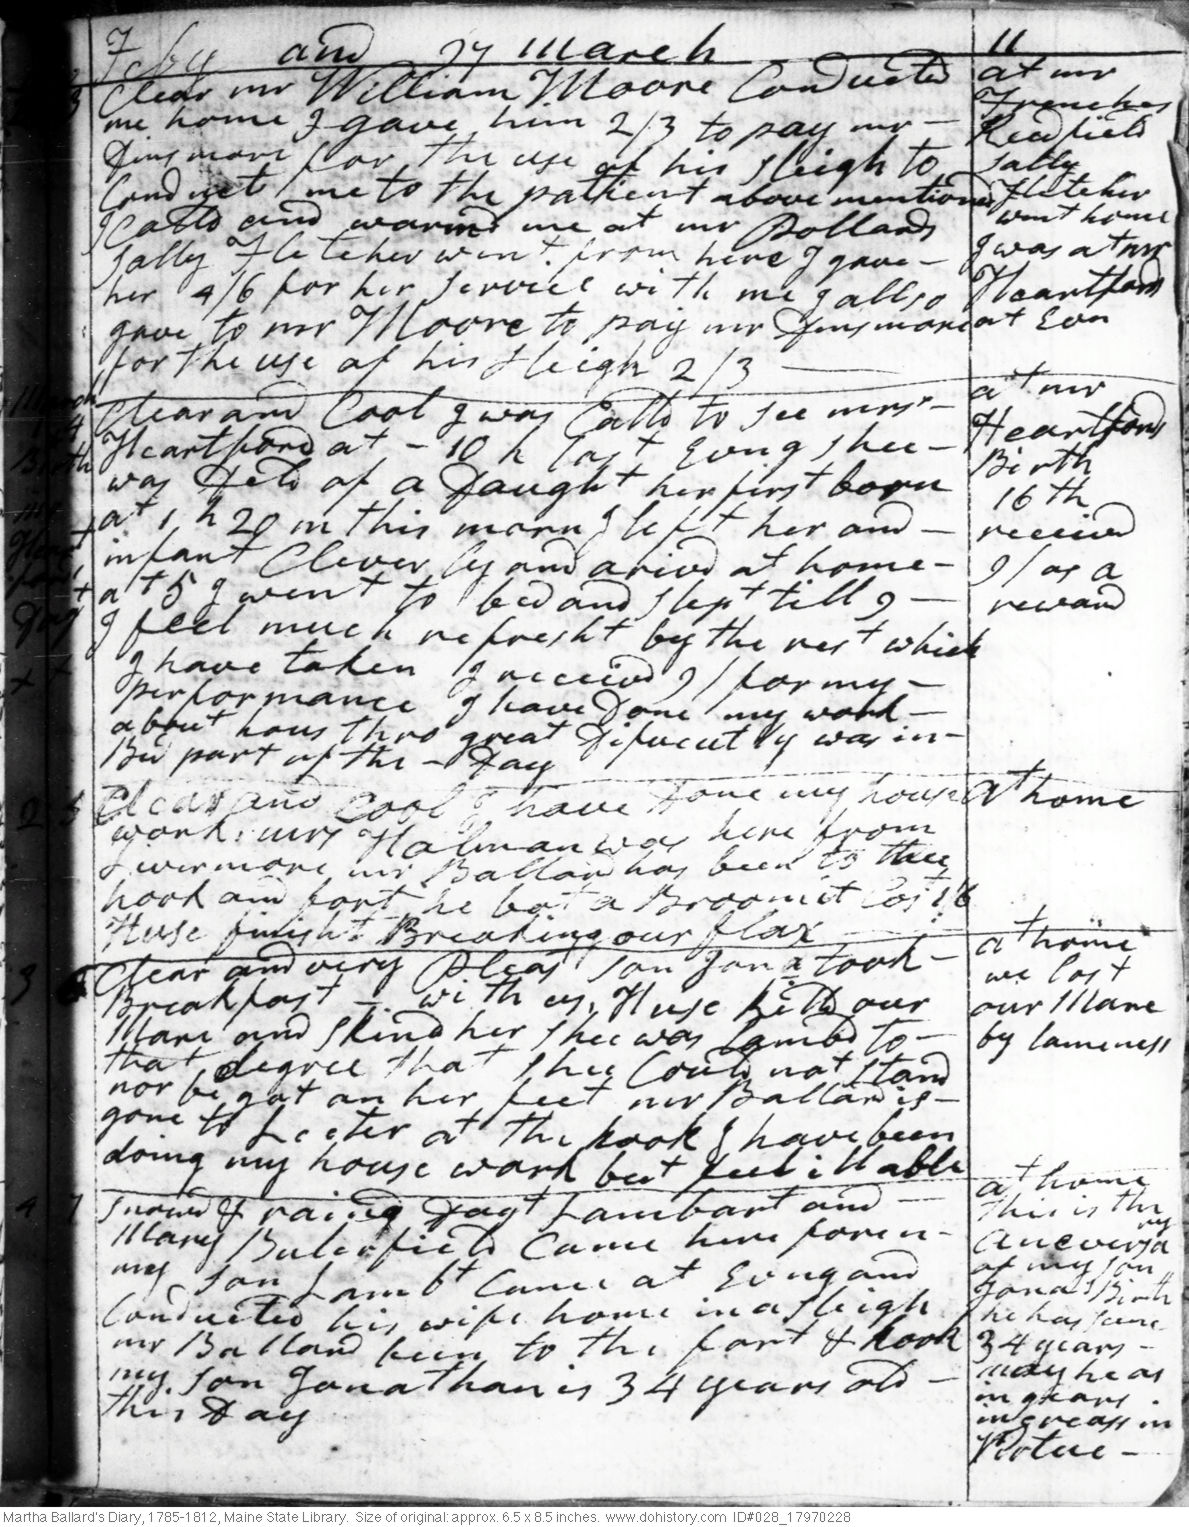 Feby and 27 march 11
Clear mr William Moore Conducted
me home I gave him 2/3 to pay mr -
Dinsmore for the use of his sleigh to
Conduct me to the patient above mentiond
I Calld and warmd me at mr Pollards
Sally Fletcher went from here I gave -
her 4/6 for her Service with me I allso
gave to mr Moore to pay mr Dinsmore
for the use of his sleigh 2/3
at mr
Frenches
Readfield
Sally
Fletcher
went home
I was at mr
Heartfords
at Evn
March
1 4
Birth
mr
Heart
fords
Clear and Cool I was Calld to see mrs -
Heartford at - 10 h last Evng shee -
was Deld of a Daught her first born
at 1 h 20 m this morn I left her and -
infant Cleverly and arivd at home -
at 5 I went to bed and slept till 9 -
I feel much refresht by the rest which
I have taken I receivd 9/ for my -
performance I have Done my work -
about hous thro great Dificuelty I was in -
Bed part of the - Day
at mr
Heartfords
Birth
16th
received
9/ as a
reward
x x
2 5
Clear and Cool I have Done my house
work. mrs Halman was here from
Livermore mr Ballard has been to the
hook and fort, he bot a Broom it Cost 1/6
Huse finisht Breaking our flax
at home
3 6
Clear and very Pleast Son Jona took -
Breakfast - with us. Huse killd our
Mare and skind her shee was Lambd to -
that degree that shee Could not stand
nor be got on her feet mr Ballard is -
gone to Lecter at the hook I have been
doing my house work but feel ill able
at home
we lost
our Mare
by lameness
4 7
Snowd & raind Dagt Lambart and
Mary Buterfield Came here foren -
my son Lambt Came at Evng and
Conducted his wife home in a sleigh
mr Ballard been to the fort & hook
my son Jonathan is 34 years old -
this Day
at home
this is the
aneversary
of my son
Jonas Birth
he has seene
34 years -
may he as
in years
increass in
Virtue -
Martha Ballard's Diary, 1785-1812, Maine State Library. Size of original: approx. 6.5 x 8.5 inches. www.dohistory.com ID#028_17970228